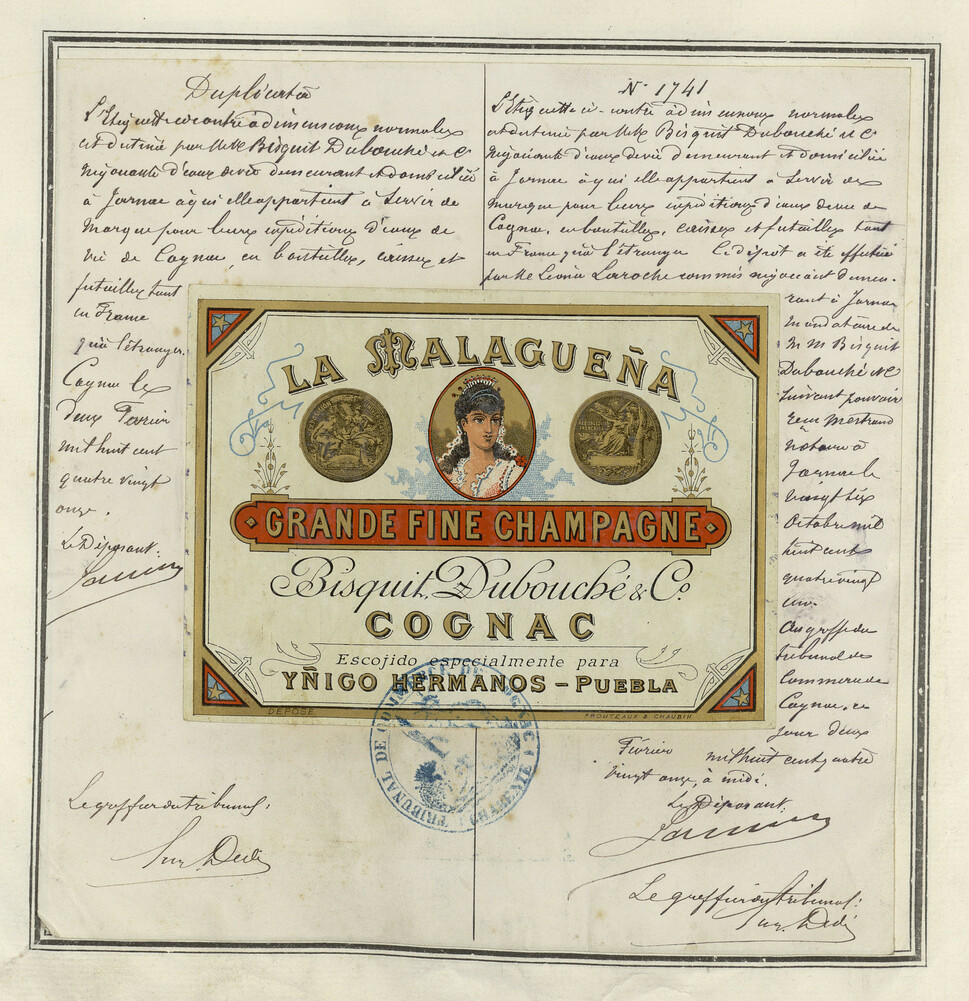 Duplicata
L'Etiquette ci-contre à dimensions normales
est destinée par MM. Bisquit Dubouché et Cie
négociants d'eaux de vie demeurant et domiciliés
à Jarnac à qui elle appartient à servir de
marque pour leurs expéditions d'eaux de
vie de Cognac, en bouteilles, caisses et
futailles tant
en France
qu'à l'étranger.
Cognac le
deux Février
mil huit cent
quatre vingt
onze.
Le Déposant:
Le greffier du tribunal:
N° 1741
L'Etiquette ci-contre à dimensions normales
est destinée par MM. Bisquit Dubouché et Cie
négociants d'eaux de vie demeurant et domiciliés
à Jarnac à qui elle appartient à servir de
marque pour leurs expéditions d'eaux de vie de
Cognac, en bouteilles, caisses et futailles tant
en France qu'à l'étranger Le dépôt a été effectué
par Mr Leonis Laroche commis négociant demeu-
rant à Jarnac
mandataire de
MM Bisquit
Dubouché et Cie
suivant pouvoir
notaire à
Jarnac le
vingt six
Octobre mil
huit cent
quatre vingt
un.
Au greffe du
tribunal de
Commerce de
Cognac, ce
jour deux
Février mil huit cent quatre
vingt onze, à midi.
Le Déposant:
Le greffier du tribunal:
LA MALAGUEÑA
GRANDE FINE CHAMPAGNE
Bisquit, Dubouché & Co.
COGNAC
Escojido especialmente para
YÑIGO HERMANOS - PUEBLA
DÉPOSÉ
FROUTEAUX & CHAUBIN
TRIBUNAL DE COMMERCE DE COGNAC (CHARENTE)